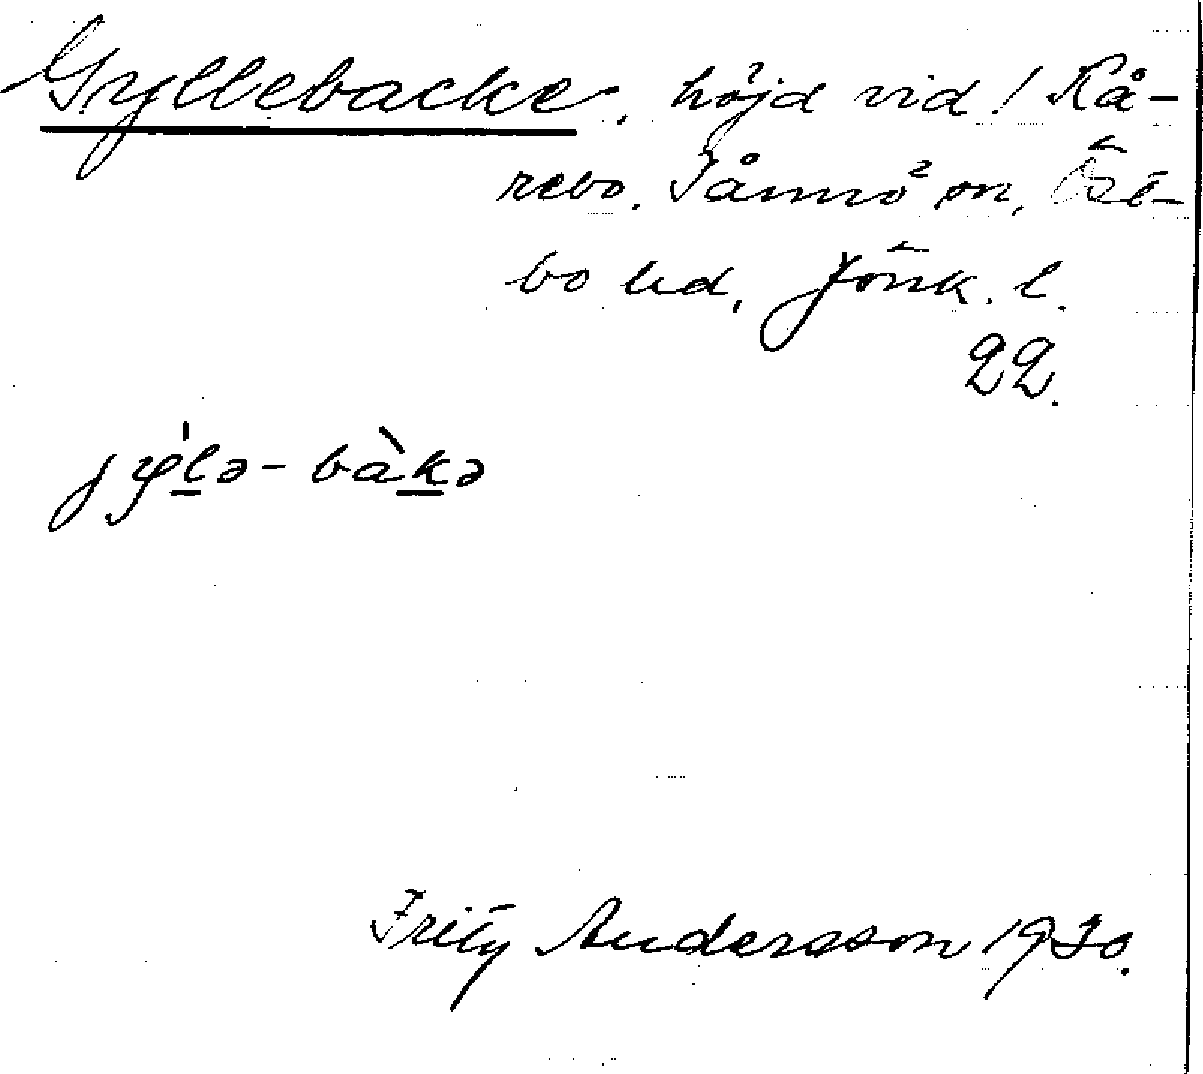 Gyllebacke, höjd vid / Rå-
rebo. Tånnö sn, Öst-
bo hd, Jönk. l.
22.
jy̍lə-bàkə
Fritz Andersson 1930.